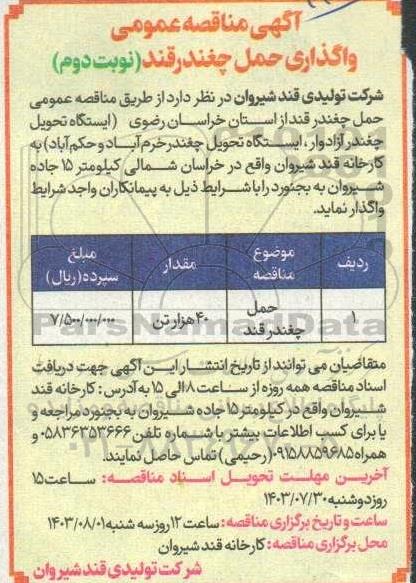 آگهی مناقصه عمومی
واگذاری حمل چغندرقند (نوبت دوم)
شرکت تولیدی قند شیروان در نظر دارد از طریق مناقصه عمومی
حمل چغندر قند از استان خراسان رضوی (ایستگاه تحویل
چغندر آزادوار، ایستگاه تحویل چغندر خرم آباد و حکم آباد) به
کارخانه قند شیروان واقع در خراسان شمالی کیلومتر ۱۵ جاده
شیروان به بجنورد را با شرایط ذیل به پیمانکاران واجد شرایط
واگذار نماید.
ردیف موضوع مناقصه مقدار مبلغ سپرده (ریال)
۱ حمل چغندر قند ۴۰ هزار تن ۷/۵۰۰/۰۰۰/۰۰۰
ParsNamadData
متقاضیان می توانند از تاریخ انتشار این آگهی جهت دریافت
اسناد مناقصه همه روزه از ساعت ۸ الی ۱۵ به آدرس: کارخانه قند
شیروان واقع در کیلومتر ۱۵ جاده شیروان به بجنورد مراجعه و
یا برای کسب اطلاعات بیشتر با شماره تلفن ۰۵۸۳۶۳۵۳۶۶۶ و
همراه ۰۹۱۵۸۸۵۹۶۸۵ (رحیمی) تماس حاصل نمایند.
آخرین مهلت تحویل اسناد مناقصه: ساعت ۱۵
روز دوشنبه ۱۴۰۳/۰۷/۳۰
ساعت و تاریخ برگزاری مناقصه: ساعت ۱۲ روز سه شنبه ۱۴۰۳/۰۸/۰۱
محل برگزاری مناقصه: کارخانه قند شیروان
شرکت تولیدی قند شیروان